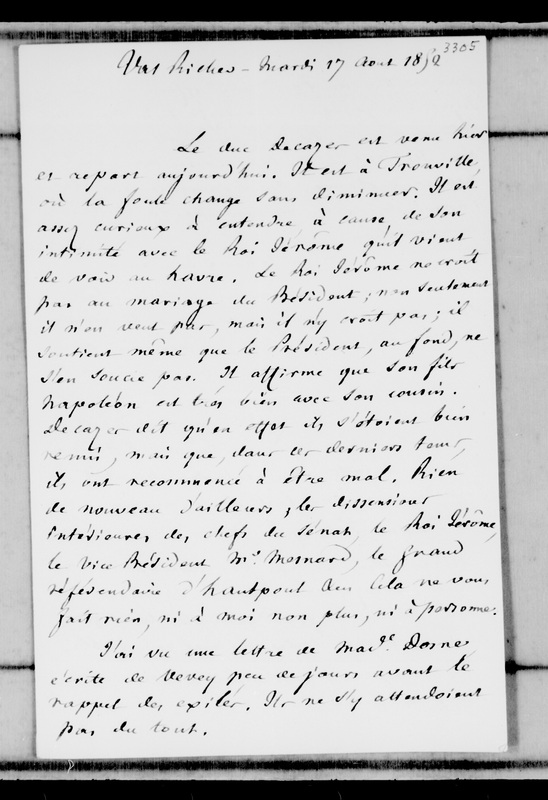 3305
Val Richer – Mardi 17 Aout 1852
Le duc Decazes est venu hier
et repart aujourd'hui. Il est à Trouville,
où la foule change sans diminuer. Il est
assez curieux à entendre à cause de son
intimité avec le Roi Jérôme qu'il vient
de voir au havre. Le Roi Jérôme ne croit
pas au mariage du Président ; non seulement
il n'en veut pas, mais il n'y croit pas ; il
soutient même que le Président, au fond, ne
s'en soucie pas. Il affirme que son fils
Napoléon est très bien avec son cousin.
Decazes dit qu'en effet ils s'étoient bien
remis, mais que, dans ces derniers tems,
ils ont recommencé à être mal. Rien
de nouveau d'ailleurs ; les dissensions
intérieures des chefs du Sénat, le Roi Jérôme,
le Vice Président Mr. Mesnard, le grand
référendaire d'hautpoul &c. Cela ne vous
fait rien, ni à moi non plus, ni à personne.
J'ai vu une lettre de Made. Dosne
écrite de Vevey peu de jours avant le
rappel des exilés. Ils ne s'y attendoient
pas du tout.